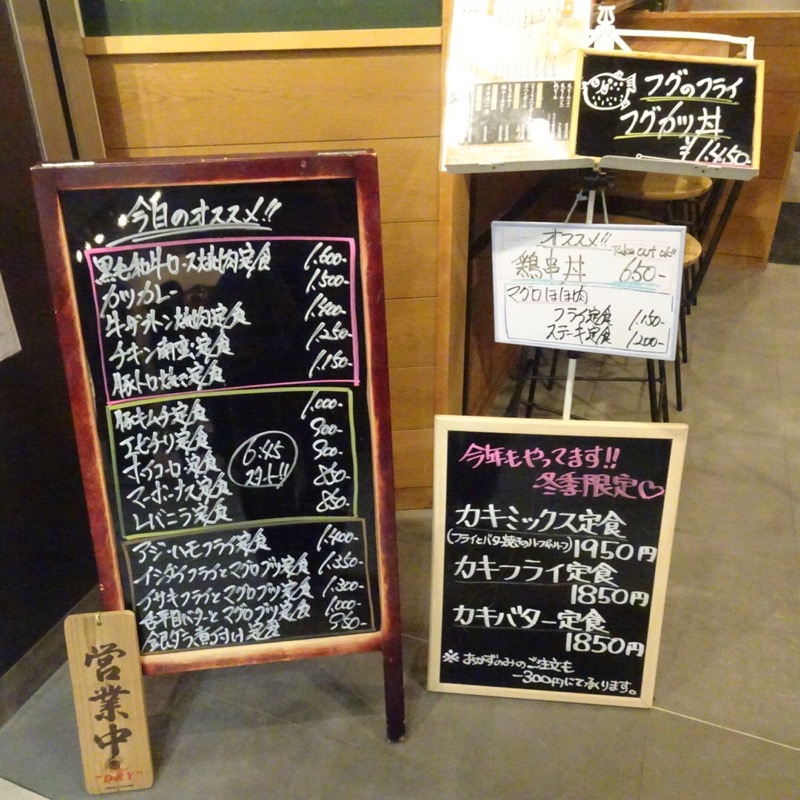 今日のオススメ!!
黒毛和牛ロース焼肉定食 1,600-
カツカレー 1,500-
牛 焼肉定食 1,400-
チキン南蛮定食 1,250-
豚トロ焼き定食 1,150-
豚キムチ定食 1,000-
エビチリ定食 900-
ホイコーロ定食 900-
マーボーナス定食 850-
レバニラ定食 850-
6:45
スタート!!
アジ・ハモフライ定食 1,400-
イシダイフライとマグロブツ定食 1,350-
イサキフライとマグロブツ定食 1,300-
舌平目バターとマグロブツ定食 1,000-
銀ダラ煮付け定食 950-
営業中
"DRY"
フグのフライ
フグカツ丼
¥1,450-
オススメ!!
Take out ok!!
鶏串丼 650-
マグロほほ肉
フライ定食 1,150-
ステーキ定食 1,200-
今年もやってます!!
冬季限定♡
カキミックス定食
(フライとバター焼きのハーフ&ハーフ) 1950円
カキフライ定食
1850円
カキバター定食
1850円
※ おかずのみのご注文も
-300円にて承ります。